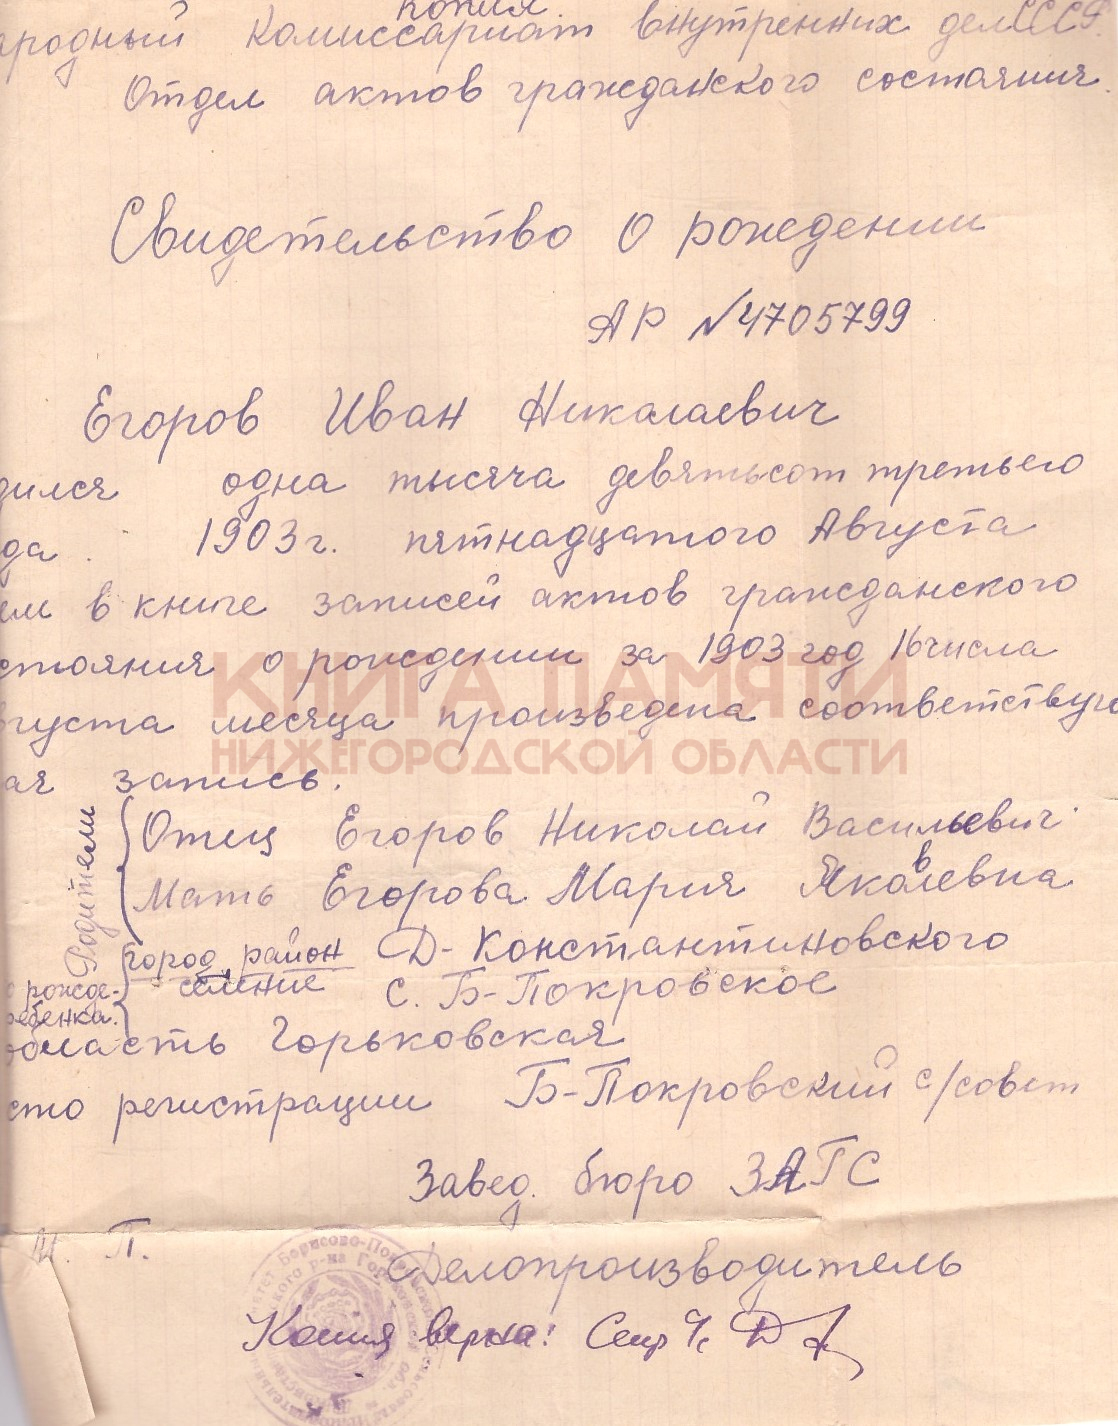 копия
ародный Комиссариат внутренних дел СССР.
Отдел актов гражданского состояния.
Свидетельство о рождении
АР №4705799
Егоров Иван Николаевич
дился одна тысяча девятьсот третьего
да. 1903 г. пятнадцатого Августа
ем в книге записей актов гражданского
стояния о рождении за 1903 год 16 числа
вгуста месяца произведена соответствую
ая запись.
КНИГА ПАМЯТИ
НИЖЕГОРОДСКОЙ ОБЛАСТИ
Родители
Отец Егоров Николай Васильевич
Мать Егорова Мария Яковлевна
город, район Д-Константиновского
селение с. Б-Покровское
о рожде-
ребенка.
область Горьковская
сто регистрации Б-Покровский с/совет
Завед. бюро ЗАГС
М. П.
Делопроизводитель
Копия верна: Секр с/с